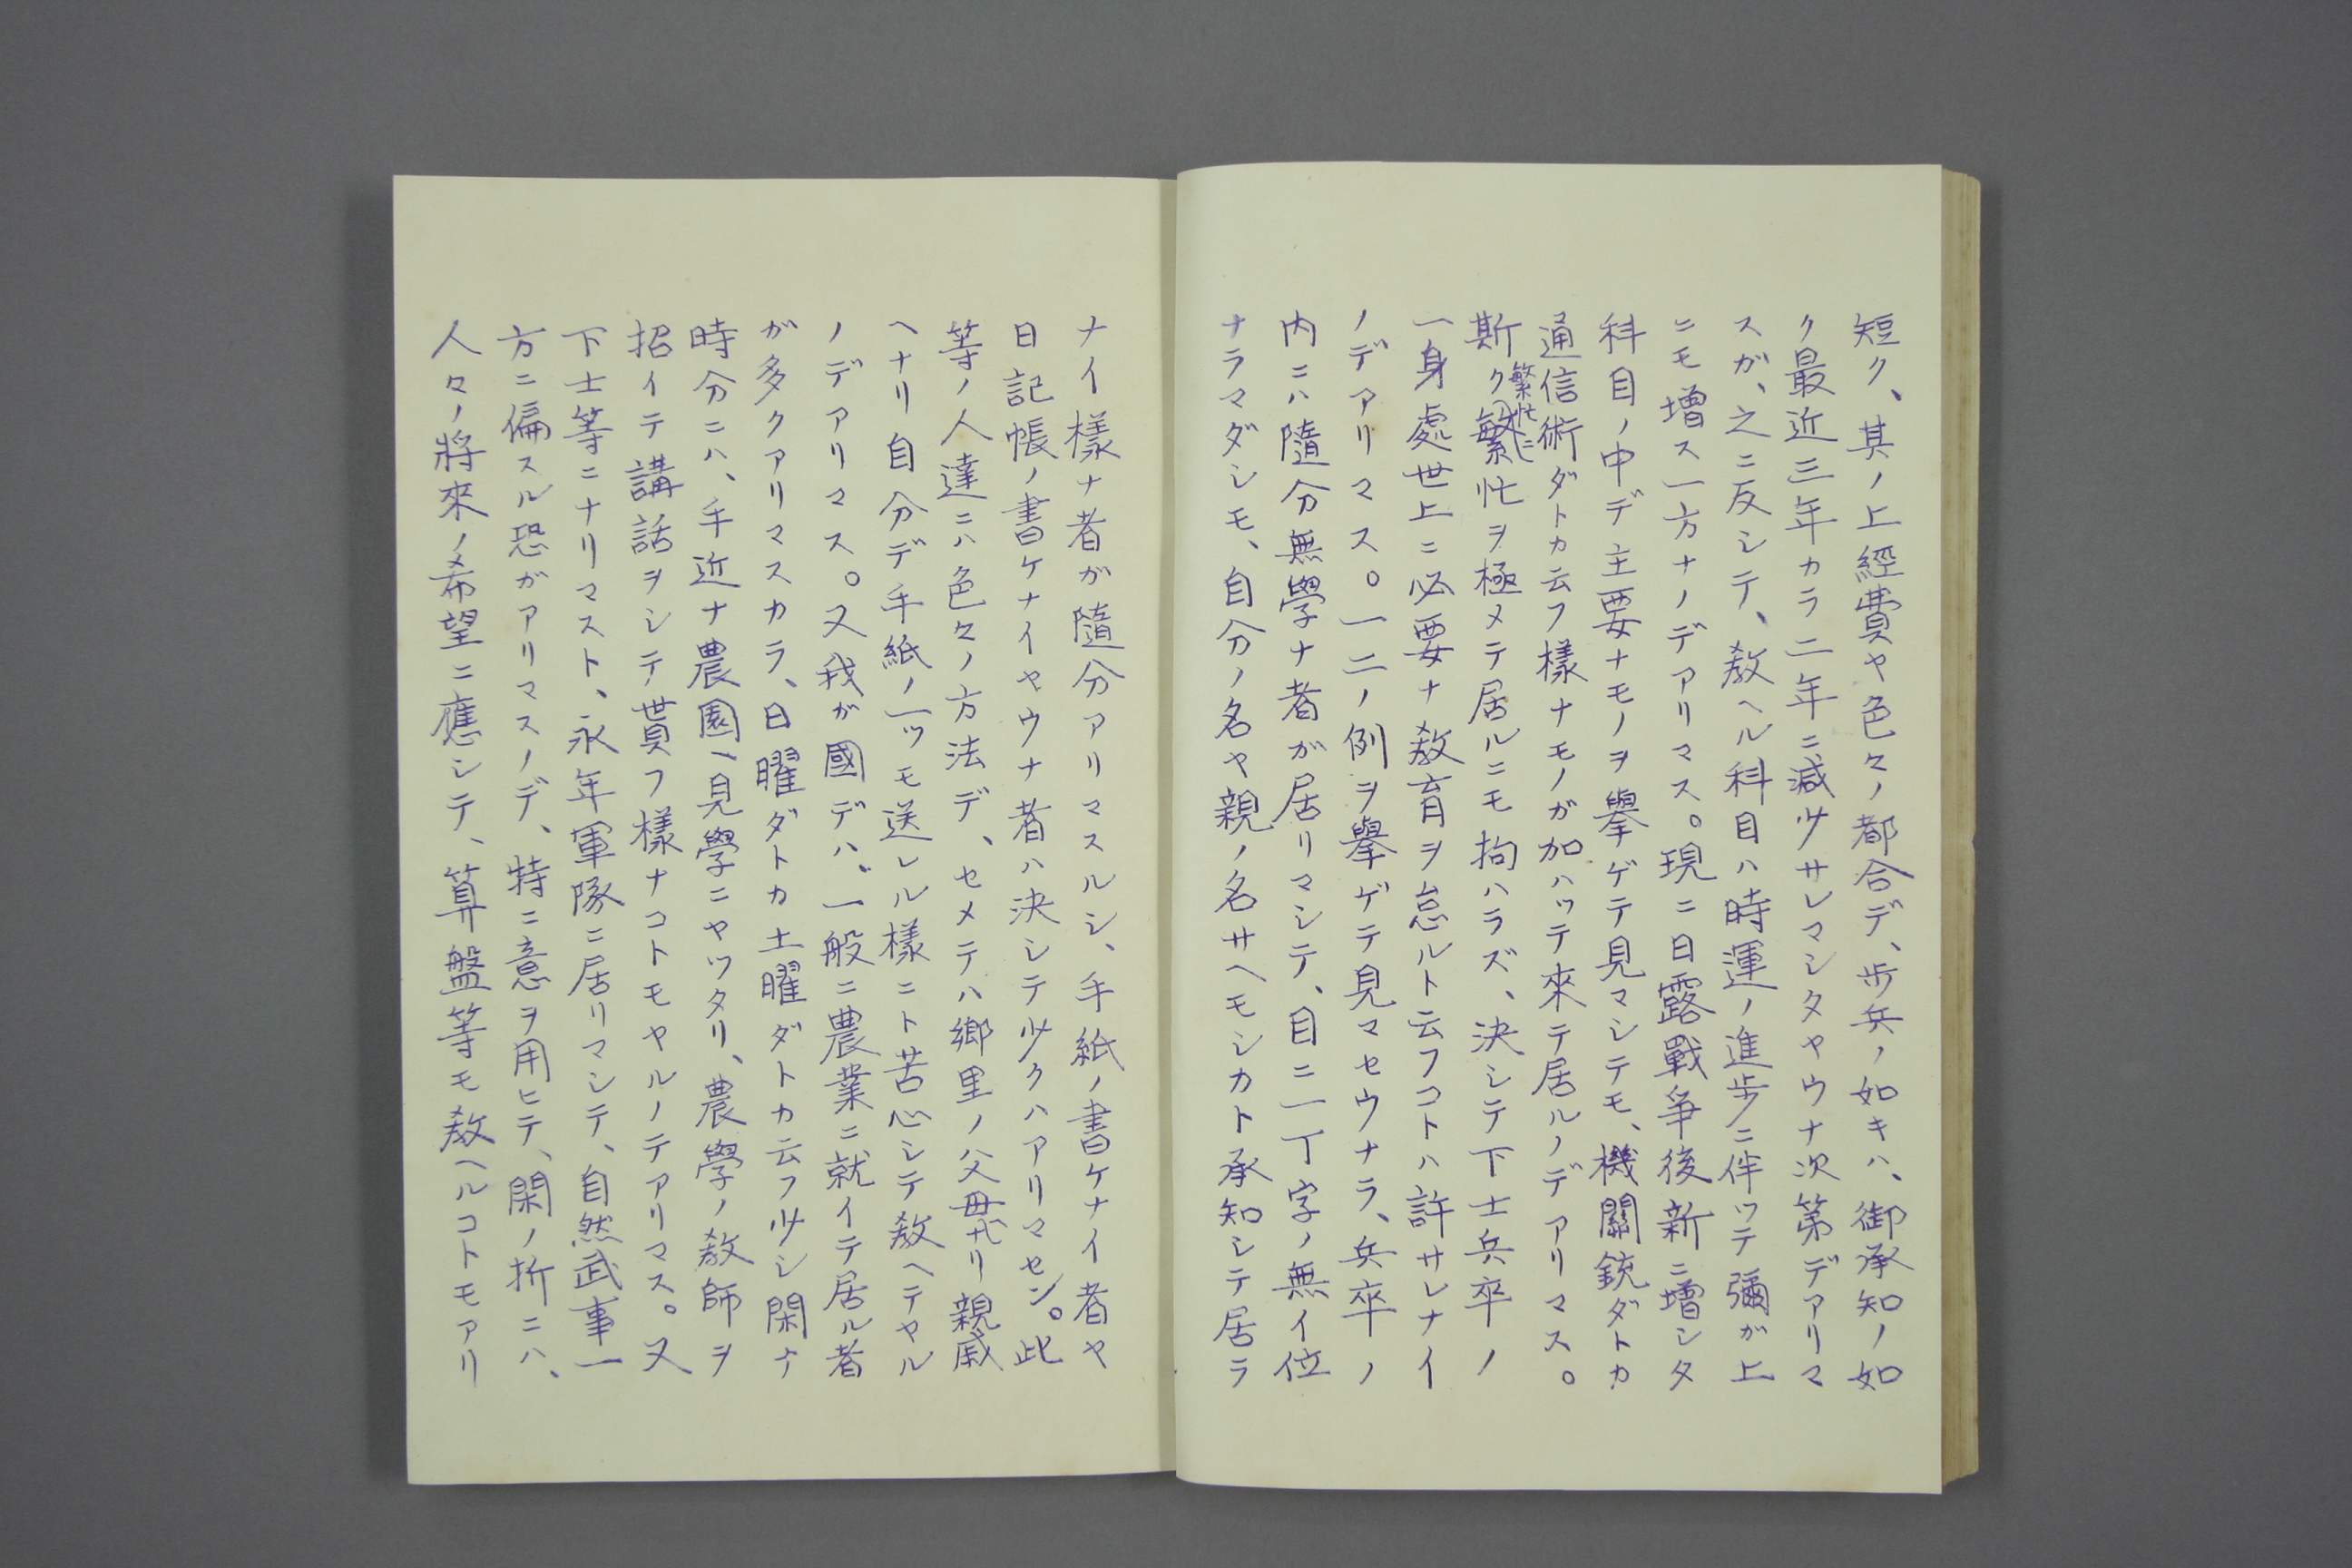 短ク、其ノ上經費ヤ色々ノ都合デ、歩兵ノ如キハ、御承知ノ如
ク最近三年カラ二年ニ減少サレマシタヤウナ次第デアリマ
スガ、之ニ反シテ、敎ヘル科目ハ時運ノ進歩ニ伴ツテ彌が上
ニモ增ス一方ナノデアリマス。現ニ日露戰爭後新ニ增シタ
科目ノ中デ主要ナモノヲ擧ゲテ見マシテモ、機關銃ダトカ
通信術ダトカ云フ樣ナモノガ加ハツテ來テ居ルノデアリマス。
斯ク繁忙ヲ極メテ居ルニモ拘ハラズ、決シテ下士兵卒ノ
繁忙ニ
一身處世上ニ必要ナ敎育ヲ怠ルト云フコトハ許サレナイ
ノデアリマス。一二ノ例ヲ擧ゲテ見マセウナラ、兵卒ノ
内ニハ隨分無學ナ者が居リマシテ、目ニ一丁字ノ無イ位
ナラマダシモ、自分ノ名ヤ親ノ名サヘモシカト承知シテ居ラ
ナイ樣ナ者が隨分アリマスルシ、手紙ノ書ケナイ者ヤ
日記帳ノ書ケナイヤウナ者ハ決シテ少クハアリマセン。此
等ノ人達ニハ色々ノ方法デ、セメテハ郷里ノ父母ナリ親戚
ヘナリ自分デ手紙ノ一ツモ送レル樣ニト苦心シテ敎ヘテヤル
ノデアリマス。又我が國デハ、一般ニ農業ニ就イテ居ル者
が多クアリマスカラ、日曜ダトカ土曜ダトカ云フ少シ閑ナ
時分ニハ、手近ナ農園ヘ見學ニヤツタリ、農學ノ敎師ヲ
招イテ講話ヲシテ貰フ樣ナコトモヤルノデアリマス。又
下士等ニナリマスト、永年軍隊ニ居リマシテ、自然武事一
方ニ偏スル恐がアリマスノデ、特ニ意ヲ用ヒテ、閑ノ折ニハ、
人々ノ將來ノ希望ニ應シテ、算盤等モ敎ヘルコトモアリ